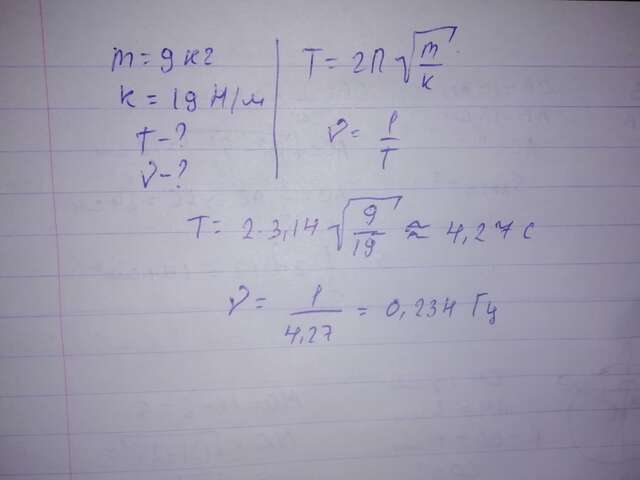 m = 9 кг
k = 19 Н/м
T - ?
ν - ?
T = 2π √(m/k)
ν = 1/T
T = 2·3,14 √(9/19) ≈ 4,27 с
ν = 1/4,27 = 0,234 Гц